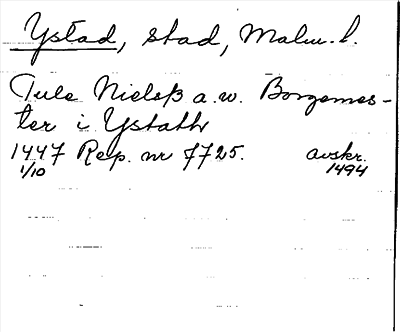 Ystad, stad, Malm. l.
Tule Nielsß a.w. Borgemes-
ter i Ystath
1447 Rep. nr 7725. avskr.
1/10 1494